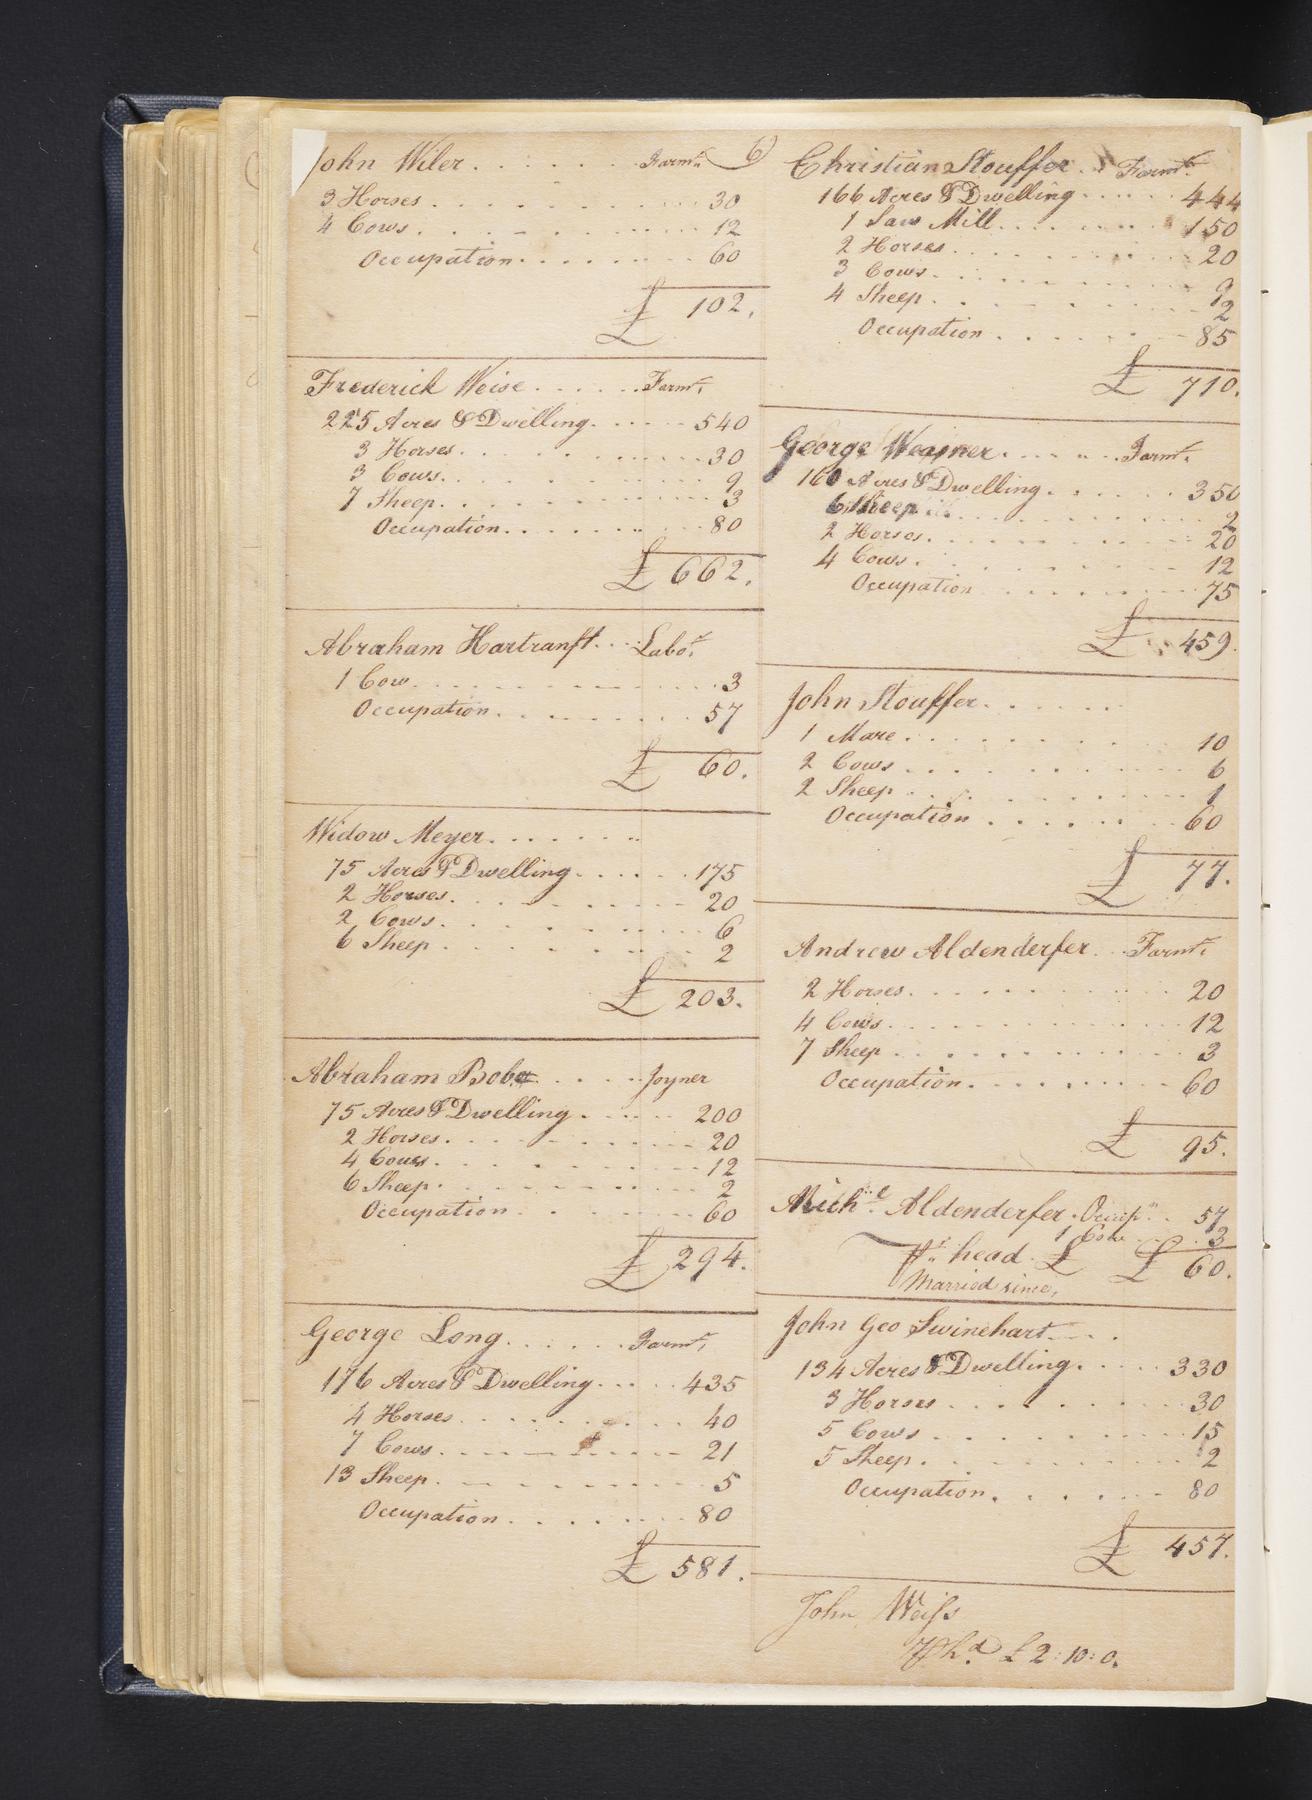 6
John Wiler . . . . . . . Farmr.
3 Horses . . . . . . . 30
4 Cows . . . . . . . 12
Occupation . . . . . . . 60
£ 102.
Frederick Weise . . . . . . Farmr.
225 Acres & Dwelling . . . . . 540
3 Horses . . . . . . . 30
3 Cows . . . . . . . 9
7 Sheep . . . . . . . 3
Occupation . . . . . . . 80
£ 662.
Abraham Hartranft . . . Labor.
1 Cow . . . . . . . 3
Occupation . . . . . . . 57
£ 60.
Widow Meyer . . . . . . .
75 Acres & Dwelling . . . . . . 175
2 Horses . . . . . . . 20
2 Cows . . . . . . . 6
6 Sheep . . . . . . . 2
£ 203.
Abraham . . . . . Joyner
75 Acres & Dwelling . . . . . 200
2 Horses . . . . . . . 20
4 Cows . . . . . . . 12
6 Sheep . . . . . . . 2
Occupation . . . . . . . 60
£ 294.
George Long . . . . . . Farmr.
176 Acres & Dwelling . . . . . 435
4 Horses . . . . . . . 40
7 Cows . . . . . . . 21
13 Sheep . . . . . . . 5
Occupation . . . . . . . 80
£ 581.
Christian Stouffer . . Farmr.
166 Acres & Dwelling . . . . . 444
1 Saw Mill . . . . . . . 150
2 Horses . . . . . . . 20
3 Cows . . . . . . . 9
4 Sheep . . . . . . . 2
Occupation . . . . . . . 85
£ 710.
George . . . . . . Farmr.
160 Acres & Dwelling . . . . . . 350
6 Sheep . . . . . . . 2
2 Horses . . . . . . . 20
4 Cows . . . . . . . 12
Occupation . . . . . . . 75
£ 459.
John Stouffer . . . . . . .
1 Mare . . . . . . . 10
2 Cows . . . . . . . 6
2 Sheep . . . . . . . 1
Occupation . . . . . . . 60
£ 77.
Andrew Aldenderfer . . Farmr.
2 Horses . . . . . . . 20
4 Cows . . . . . . . 12
7 Sheep . . . . . . . 3
Occupation . . . . . . . 60
£ 95.
Michle. Aldenderfer . Occupn. . 57
1 Cow . . . 3
Pr. head £ £ 60.
Married since,
John Geo Swinehart . . . .
134 Acres & Dwelling . . . . . 330
3 Horses . . . . . . . 30
5 Cows . . . . . . . 15
5 Sheep . . . . . . . 2
Occupation . . . . . . . 80
£ 457.
John Weiss
P hd. £ 2:10:0.